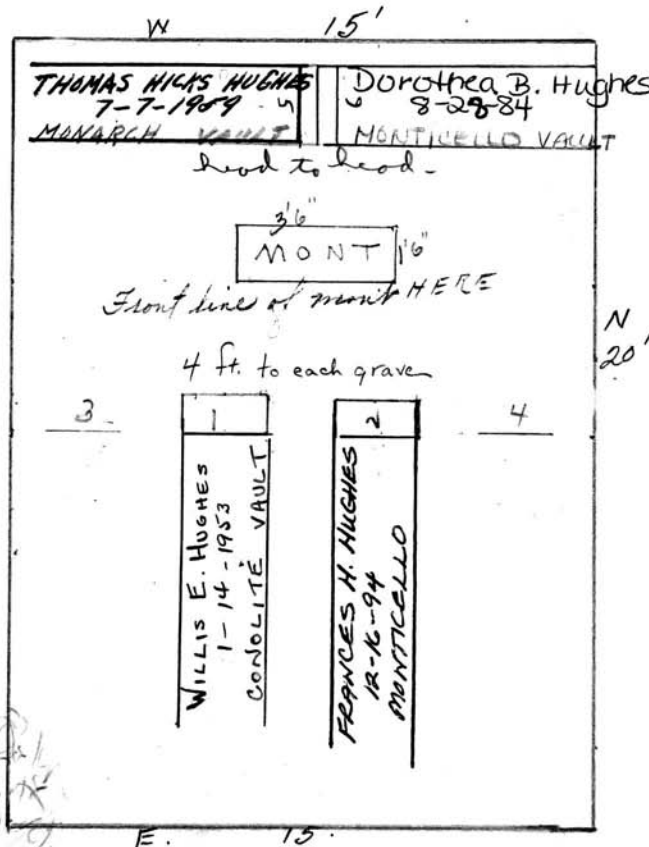 W 15'
THOMAS HICKS HUGHES
7-7-1959 5
MONARCH VAULT
Dorothea B. Hughes
6 8-28-84
MONTICELLO VAULT
head to head-
3'6"
MONT 1'6"
Front line of mont HERE
N
20'
4 ft. to each grave
3
1
2
4
WILLIS E. HUGHES
1-14-1953
CONOLITE VAULT
FRANCES H. HUGHES
12-16-94
MONTICELLO
E. 15.